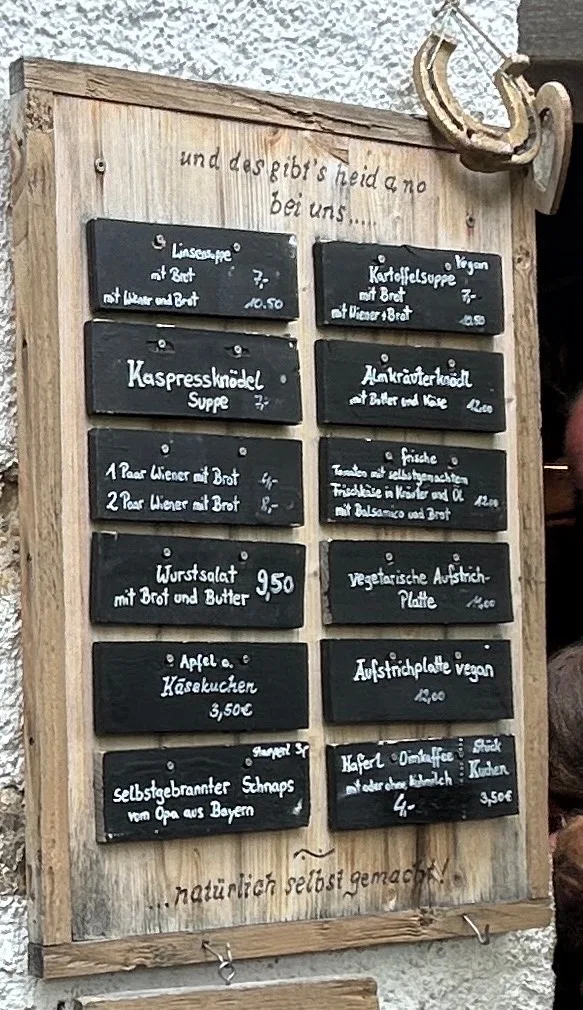 und des gibt's heid a no
bei uns.....
Linsensuppe
mit Brot 7,-
mit Wiener und Brot 10.50
Vegan
Kartoffelsuppe
mit Brot 7,-
mit Wiener + Brot 10.50
Kaspressknödel
Suppe 7,-
Almkräuterknödl
mit Butter und Käse 12,00
1 Paar Wiener mit Brot 4,-
2 Paar Wiener mit Brot 8,-
frische
Tomaten mit selbstgemachtem
Frischkäse in Kräuter und Öl
mit Balsamico und Brot 12,00
Wurstsalat 9,50
mit Brot und Butter
vegetarische Aufstrich-
Platte
Apfel o.
Käsekuchen
3,50€
Aufstrichplatte vegan
12,00
Stamperl 3,-
selbstgebrannter Schnaps
vom Opa aus Bayern
Haferl Oimkaffee
mit oder ohne Kuhmilch
4,-
Stück
Kuchen
3,50€
...natürlich selbst gemacht!